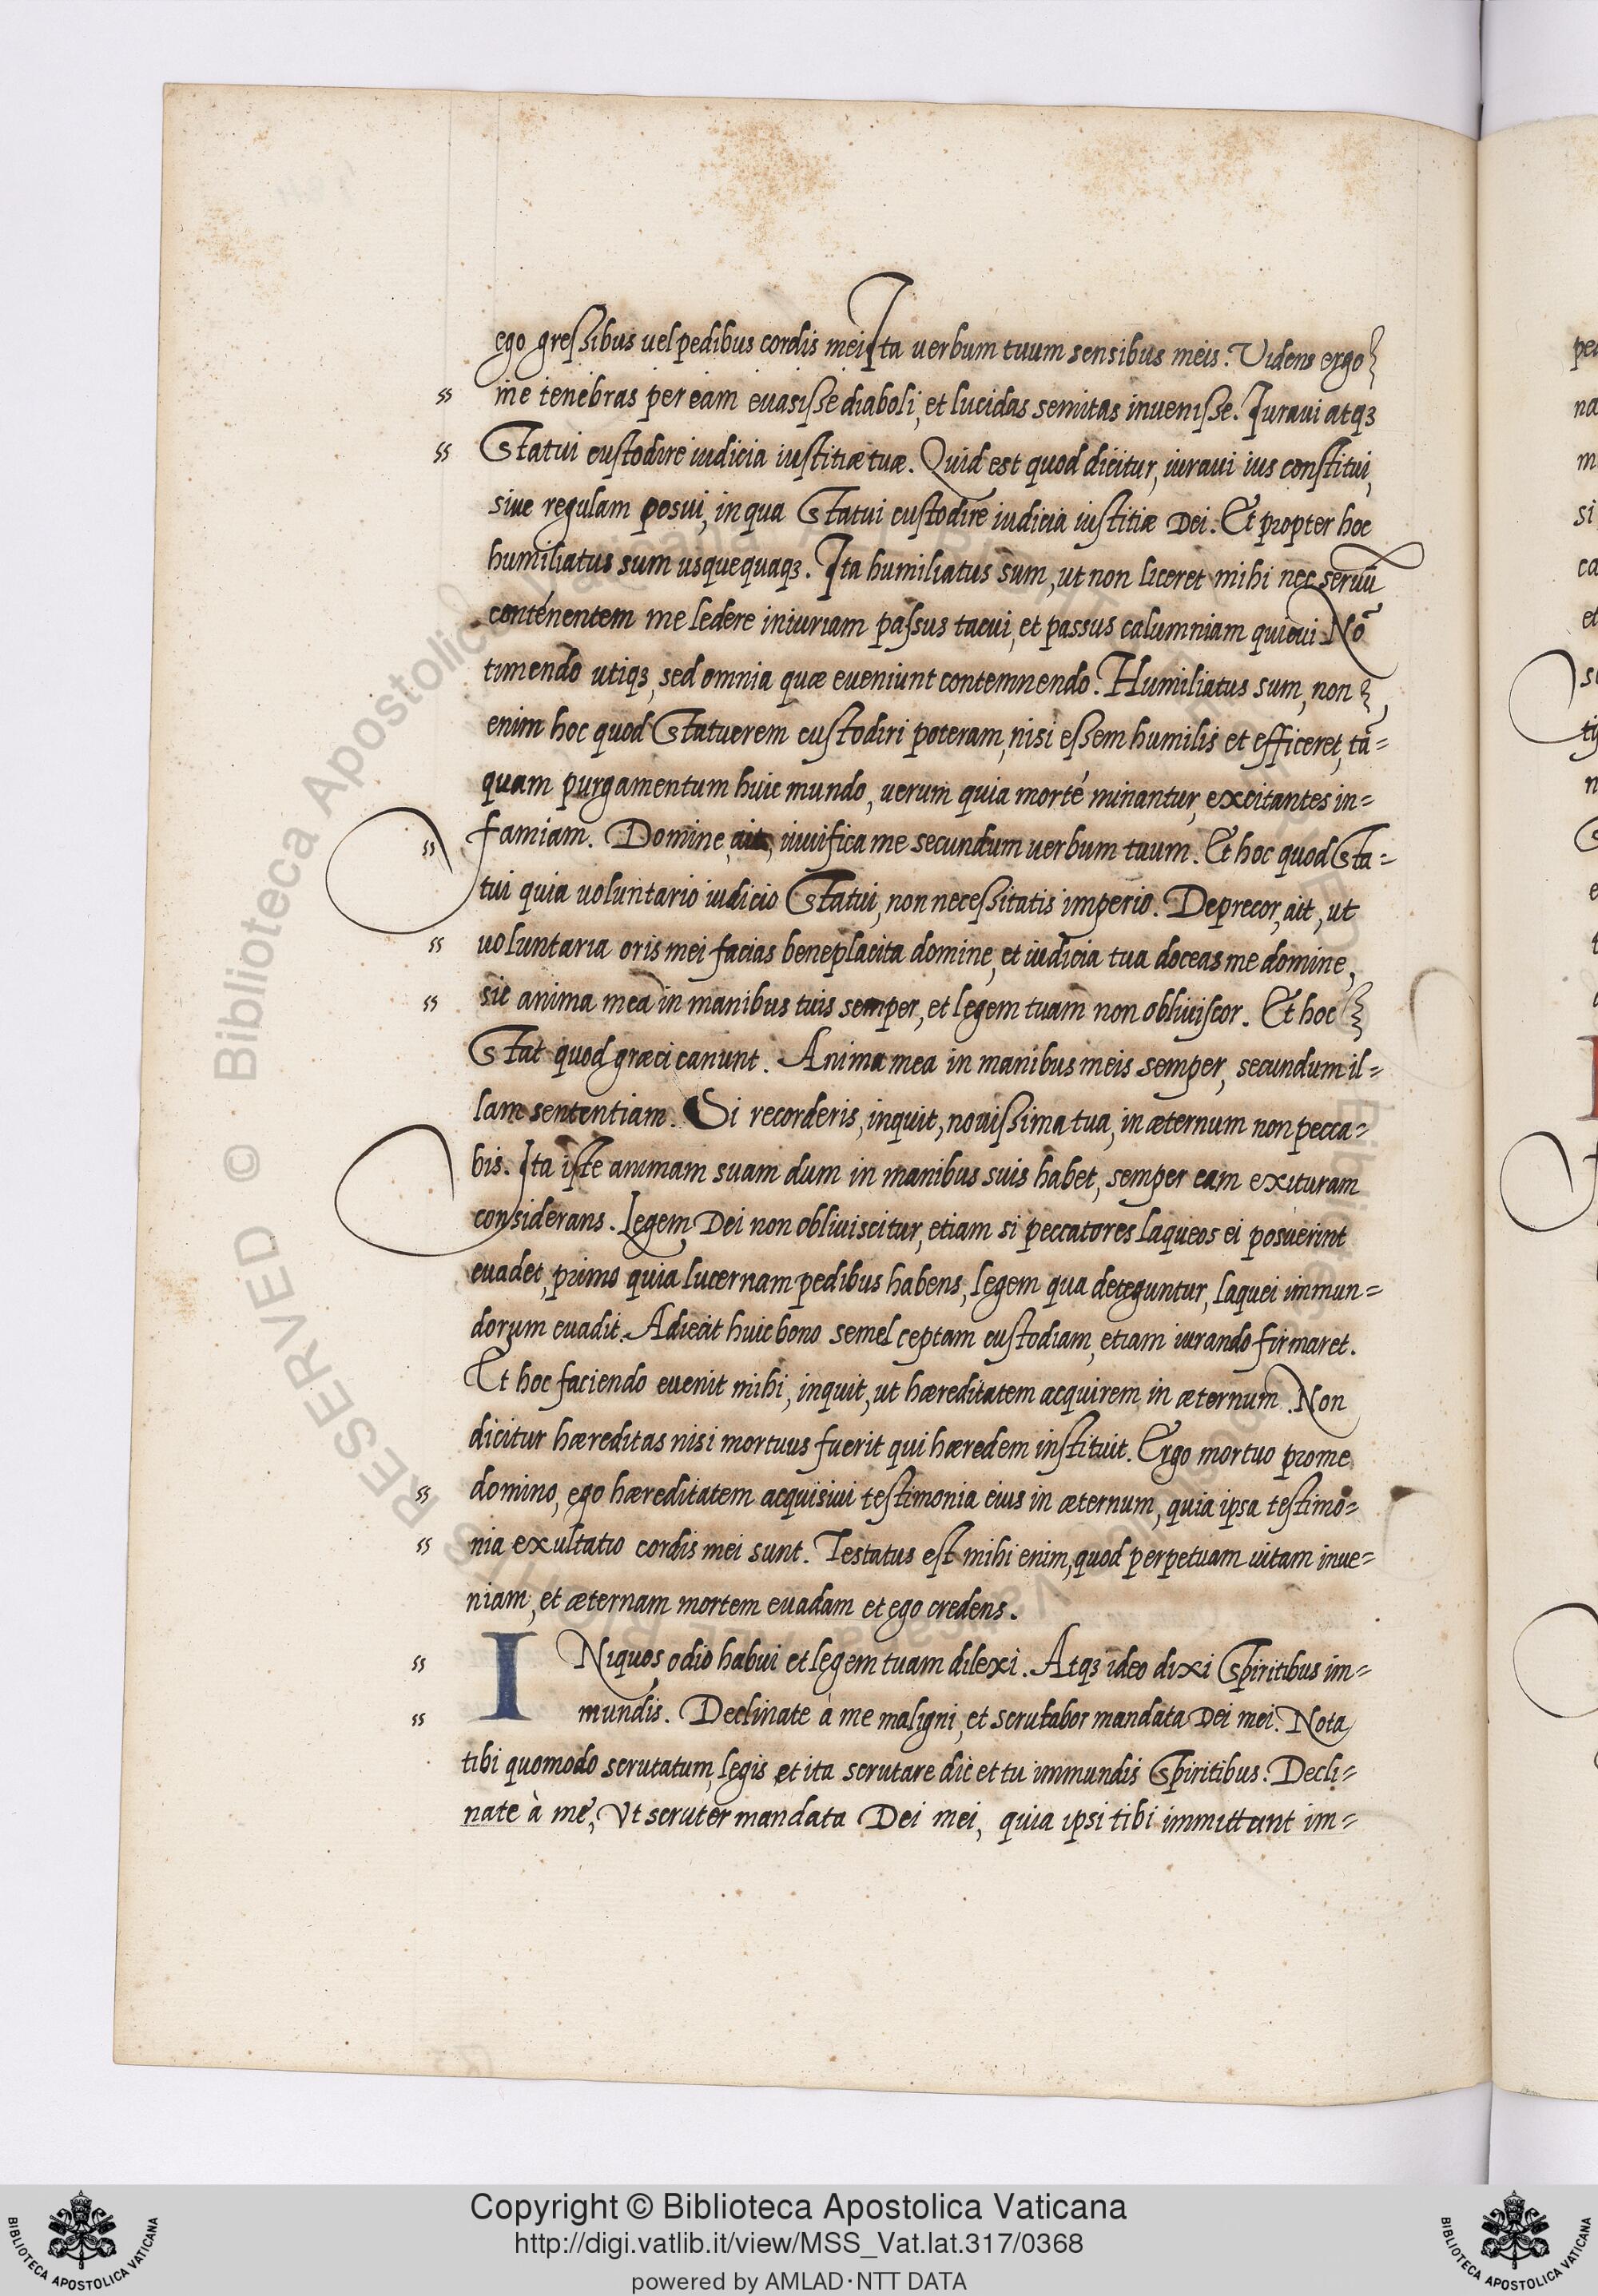 ego gressibus vel pedibus cordis mei Ita verbum tuum sensibus meis. Videns ergo
ss me tenebras per eam evasisse diaboli, et lucidas semitas invenisse. Iuravi atqꝫ
ss Statui custodire iudicia iustitiæ tuæ. Quid est quod dicitur, iuravi ius constitui,
sive regulam posui, in qua Statui custodire iudicia iustitiæ Dei. Et propter hoc
humiliatus sum usquequaqꝫ. Ita humiliatus sum, ut non liceret mihi nec servũ
conténentem me ledere iniuriam passus tacui, et passus calumniam quievi. Nõ
timendo utiqꝫ, sed omnia quæ eveniunt contemnendo. Humiliatus sum, non
enim hoc quod Statuerem custodiri poteram, nisi essem humilis et efficeret, tã=
quam purgamentum huic mundo, verum quia morté minantur, excitantes in=
ss famiam. Domine, ait, vivifica me secundum verbum tuum. Et hoc quod Sta=
tui quia voluntario iudicio Statui, non necessitatis imperio. Deprecor, ait, ut
ss voluntaria oris mei facias beneplacita domine, et iudicia tua doceas me domine,
ss sit anima mea in manibus tuis semper, et legem tuam non obliviscor. Et hoc
Stat quod græci canunt. Anima mea in manibus meis semper, secundum il=
lam sententiam. Si recorderis, inquit, novissima tua, in æternum non pecca=
bis. Ita iste animam suam dum in manibus suis habet, semper eam exituram
considerans. Legem Dei non obliviscitur, etiam si peccatores laqueos ei posuerint
evadet, primo quia lucernam pedibus habens, legem qua deteguntur, laquei immun=
dorum evadit. Adiecit huic bono semel ceptam custodiam, etiam iurando firmaret.
Et hoc faciendo evenit mihi, inquit, ut hæreditatem acquirem in æternum. Non
dicitur hæreditas nisi mortuus fuerit qui hæredem instituit. Ergo mortuo pro me
ss domino, ego hæreditatem acquisivi testimonia eius in æternum, quia ipsa testimo=
ss nia exultatio cordis mei sunt. Testatus est mihi enim, quod perpetuam vitam inve=
niam, et æternam mortem evadam et ego credens.
ss INiquos odio habui et legem tuam dilexi. Atqꝫ ideo dixi Spiritibus im=
ss mundis. Declinate à me maligni, et scrutabor mandata Dei mei. Nota
tibi quomodo scrutatum, legis et ita scrutare dic et tu immundis Spiritibus. Decli=
nate à me, Vt scruter mandata Dei mei, quia ipsi tibi immittunt im=
Copyright © Biblioteca Apostolica Vaticana
http://digi.vatlib.it/view/MSS_Vat.lat.317/0368
powered by AMLAD·NTT DATA